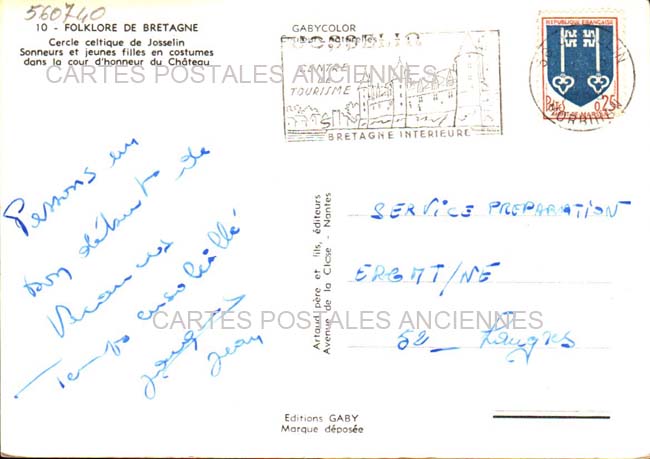 560740
10 - FOLKLORE DE BRETAGNE
Cercle celtique de Josselin
Sonneurs et jeunes filles en costumes
dans la cour d'honneur du Château
GABYCOLOR
CENTRE
TOURISME
BRETAGNE INTERIEURE
REPUBLIQUE FRANÇAISE
0,25
CARTES POSTALES ANCIENNES
Passons un
bon début de
Vacances
Temps ensoleillé
Jean
Artaud père et fils, éditeurs
Avenue de la Close - Nantes
SERVICE PREPARATION
ERGMT/NE
52 _ Langres
CARTES POSTALES ANCIENNES
Editions GABY
Marque déposée